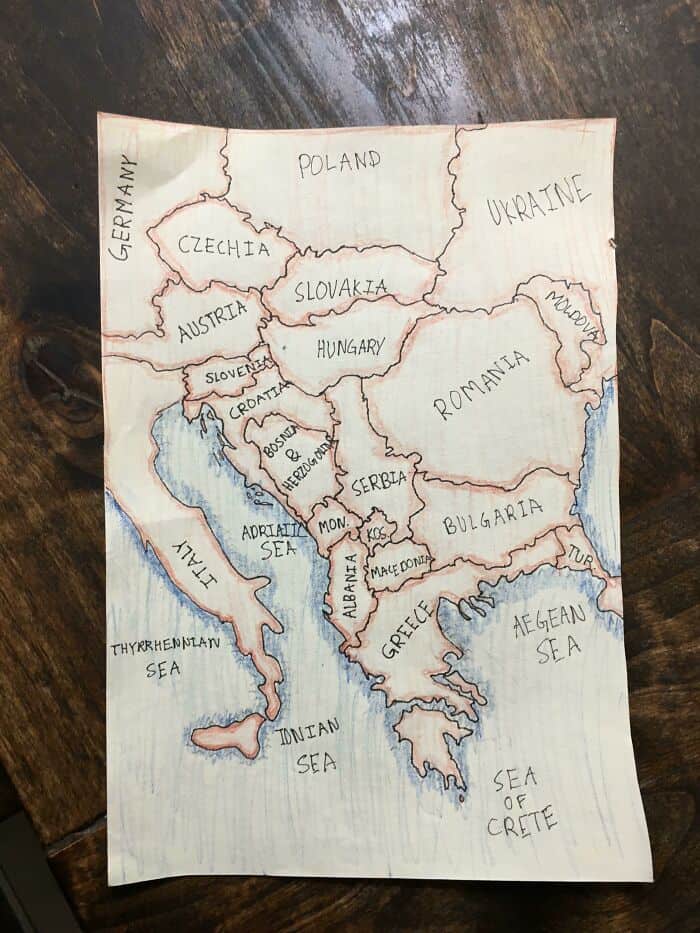 GERMANY
POLAND
UKRAINE
CZECHIA
SLOVAKIA
MOLDOVA
AUSTRIA
HUNGARY
SLOVENIA
ROMANIA
CROATIA
BOSNIA
&
HERZOGOVINA
SERBIA
BULGARIA
ADRIATIC
SEA
MON.
KOS.
ITALY
ALBANIA
MACEDONIA
TUR.
GREECE
AEGEAN
SEA
THYRRHENNIAN
SEA
IONIAN
SEA
SEA
OF
CRETE